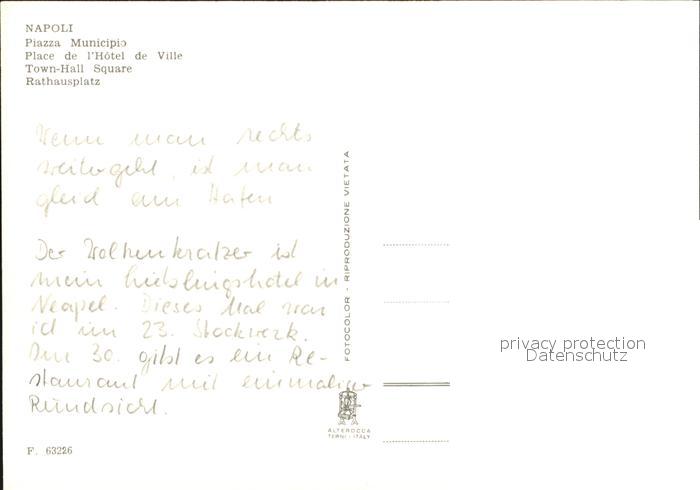 NAPOLI
Piazza Municipio
Place de l'Hôtel de Ville
Town-Hall Square
Rathausplatz
Wenn man rechts
weitergeht, ist man
gleich am Hafen
Der Wolkenkratzer ist
mein Lieblingshotel in
Neapel. Dieses Mal war
ich im 23. Stockwerk.
Im 30. gibt es ein Re-
staurant mit einmaliger
Rundsicht.
FOTOCOLOR - RIPRODUZIONE VIETATA
ALTEROCCA
TERNI - ITALY
privacy protection
Datenschutz
F. 63226